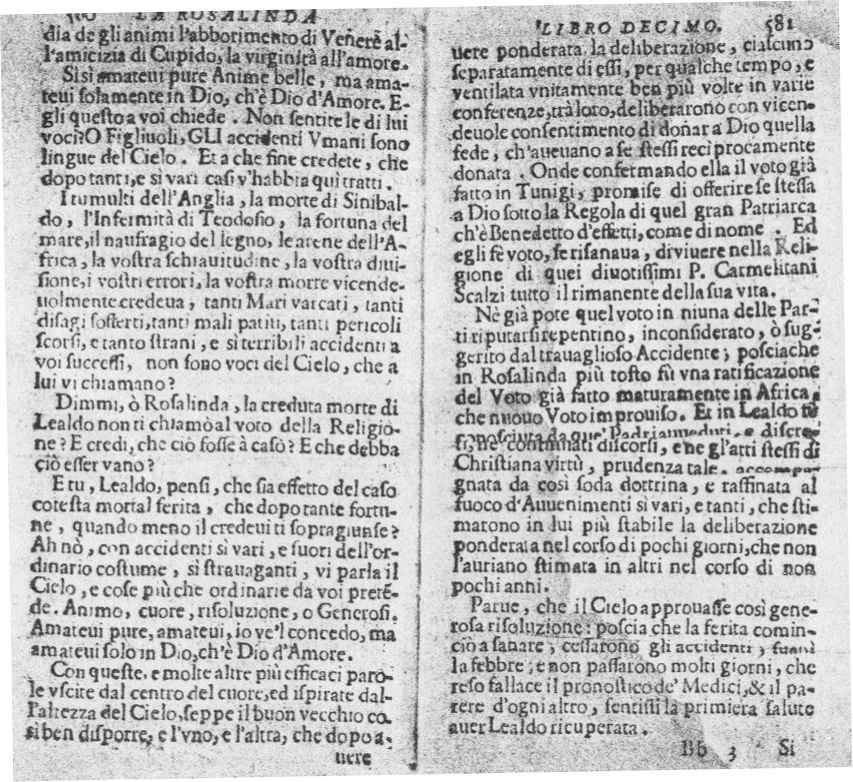 LA ROSALINDA
dia de gli animi l'abborimento di Venere al-
l'amicizia di Cupido, la virginità all'amore.
Sì sì amateui pure Anime belle, ma ama-
teui solamente in Dio, ch'è Dio d'Amore. E-
gli questo a voi chiede. Non sentite le di lui
voci? O Figliuoli, GLI accidenti Vmani sono
lingue del Cielo. Et a che fine credete, che
dopo tanti, e sì vari casi v'habbia quì tratti.
I tumulti dell'Anglia, la morte di Sinibal-
do, l'Infermità di Teodosio, la fortuna del
mare, il naufragio del legno, le arene dell'A-
frica, la vostra schiauitudine, la vostra diui-
sione, i vostri errori, la vostra morte vicende-
uolmente creduta, tanti Mari varcati, tanti
disagi sofferti, tanti mali patiti, tanti pericoli
scorsi, e tanto strani, e sì terribili accidenti a
voi successi, non sono voci del Cielo, che a
lui vi chiamano?
Dimmi, ò Rosalinda, la creduta morte di
Lealdo non ti chiamò al voto della Religio-
ne? E credi, che ciò fosse à casò? E che debba
ciò esser vano?
E tu, Lealdo, pensi, che sia effetto del caso
cotesta mortal ferita, che dopo tante fortu-
ne, quando meno il credeui ti sopragiunse?
Ah nò, con accidenti sì vari, e fuori dell'or-
dinario costume, sì strauaganti, vi parla il
Cielo, e cose più che ordinarie da voi preté-
de. Animo, cuore, risoluzione, o Generosi.
Amateui pure, amateui, io ve'l concedo, ma
amateui solo in Dio, ch'è Dio d'Amore.
Con queste, e molte altre più efficaci paro-
le vscite dal centro del cuore, ed ispirate dal-
l'altezza del Cielo, seppe il buon vecchio co-
sì ben disporre, e l'vno, e l'altra, che dopo a-
uere
LIBRO DECIMO. 581
uere ponderata la deliberazione, ciascuno
separatamente di essi, per qualche tempo, e
ventilata vnitamente ben più volte in varie
conferenze, trà loro, deliberarono con vicen-
deuole consentimento di donar a Dio quella
fede, ch'aueuano a se stessi reciprocamente
donata. Onde confermando ella il voto già
fatto in Tunigi, promise di offerire se stessa
a Dio sotto la Regola di quel gran Patriarca
ch'è Benedetto d'effetti, come di nome. Ed
egli fè voto, se risanaua, di viuere nella Reli-
gione di quei diuotissimi P. Carmelitani
Scalzi tutto il rimanente della sua vita.
Nè già pote quel voto in niuna delle Par-
ti riputarsi repentino, inconsiderato, ò sug-
gerito dal trauaglioso Accidente; posciache
in Rosalinda più tosto fù vna ratificazione
del Voto già fatto maturamente in Africa,
che nuouo Voto improuiso. Et in Lealdo fù
conosciuta da que' Padri
ti, ne' continuati discorsi, e ne gl'atti stessi di
Christiana virtù, prudenza tale, accompa-
gnata da così soda dottrina, e raffinata al
fuoco d'Auuenimenti sì vari, e tanti, che sti-
marono in lui più stabile la deliberazione
ponderata nel corso di pochi giorni, che non
l'auriano stimata in altri nel corso di non
pochi anni.
Parue, che il Cielo approuasse così gene-
rosa risoluzione: poscia che la ferita comin-
ciò a sanare; cessarono gli accidenti; suanì
la febbre; e non passarono molti giorni, che
reso fallace il pronostico de' Medici, & il pa-
rere d'ogni altro, sentissi la primiera salute
auer Lealdo ricuperata.
Bb 3 Si